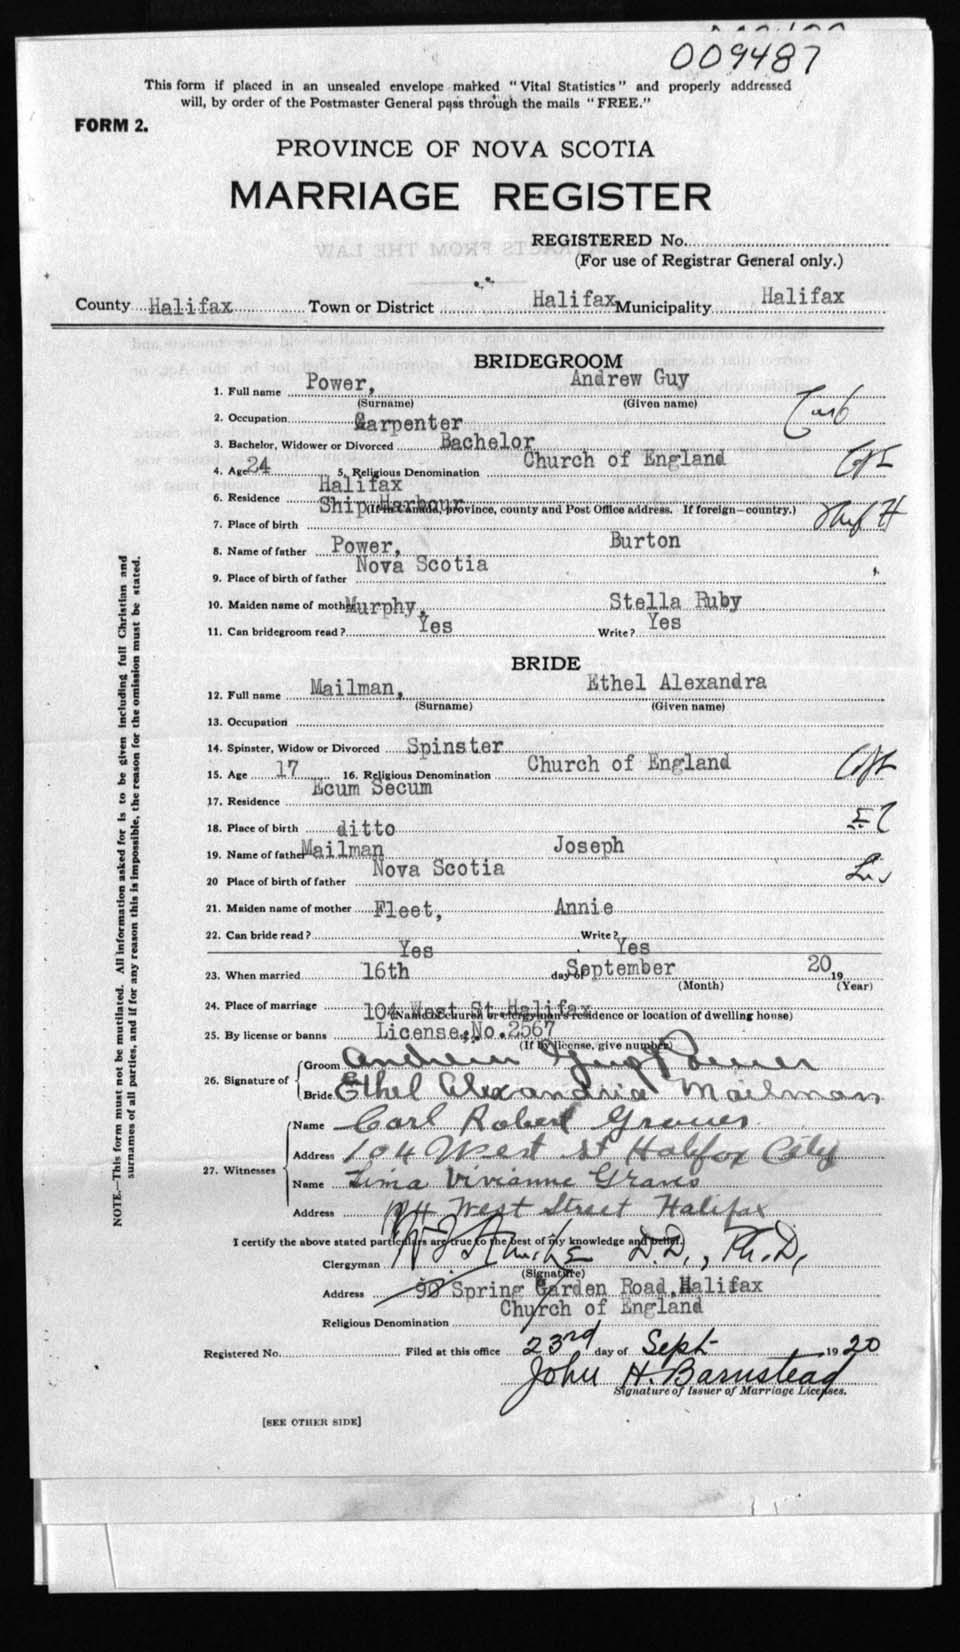 009487
This form if placed in an unsealed envelope marked "Vital Statistics" and properly addressed
will, by order of the Postmaster General pass through the mails "FREE."
FORM 2.
PROVINCE OF NOVA SCOTIA
MARRIAGE REGISTER
REGISTERED No.
(For use of Registrar General only.)
County Halifax Town or District Halifax Municipality Halifax
BRIDEGROOM
1. Full name Power, Andrew Guy
(Surname) (Given name)
2. Occupation Carpenter Carp
3. Bachelor, Widower or Divorced Bachelor
4. Age 24 5. Religious Denomination Church of England C of E
6. Residence Halifax
(If in Canada, province, county and Post Office address. If foreign—country.)
7. Place of birth Ship Harbour Ship H
8. Name of father Power, Burton
9. Place of birth of father Nova Scotia
10. Maiden name of mother Murphy, Stella Ruby
11. Can bridegroom read? Yes Write? Yes
BRIDE
12. Full name Mailman, Ethel Alexandra
(Surname) (Given name)
13. Occupation
14. Spinster, Widow or Divorced Spinster
15. Age 17 16. Religious Denomination Church of England C of E
17. Residence Ecum Secum
18. Place of birth ditto
19. Name of father Mailman Joseph
20 Place of birth of father Nova Scotia
21. Maiden name of mother Fleet, Annie
22. Can bride read? Yes Write? Yes
23. When married 16th day of September 20 19
(Month) (Year)
24. Place of marriage 104 West St Halifax
(Name of church or clergyman's residence or location of dwelling house)
25. By license or banns License, No. 2567
(If by license, give number)
26. Signature of Groom Andrew Guy Power
Bride Ethel Alexandria Mailman
27. Witnesses Name Carl Robert Graves
Address 104 West St Halifax City
Name Lima Vivianne Graves
Address 104 West Street Halifax
I certify the above stated particulars are true to the best of my knowledge and belief.
Clergyman D.D., Ph.D,
(Signature)
Address 90 Spring Garden Road, Halifax
Religious Denomination Church of England
Registered No. Filed at this office 23rd day of Sept 19 20
John H. Barnstead
Signature of Issuer of Marriage Licenses.
[SEE OTHER SIDE]
NOTE.—This form must not be mutilated. All information asked for is to be given including full Christian and
surnames of all parties, and if for any reason this is impossible, the reason for the omission must be stated.